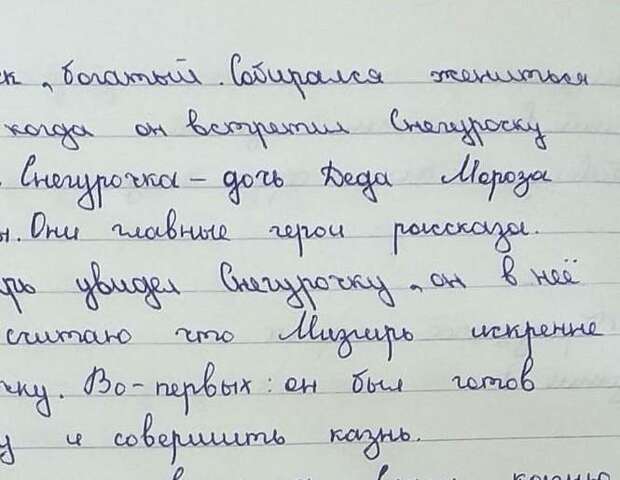 к, богатый. Собирался жениться
когда он встретил Снегурочку
. Снегурочка – дочь Деда Мороза
ы. Они главные герои рассказа.
рь увидел Снегурочку, он в неё
считаю что Мизгирь искренне
чку. Во-первых: он был готов
у и совершить казнь.